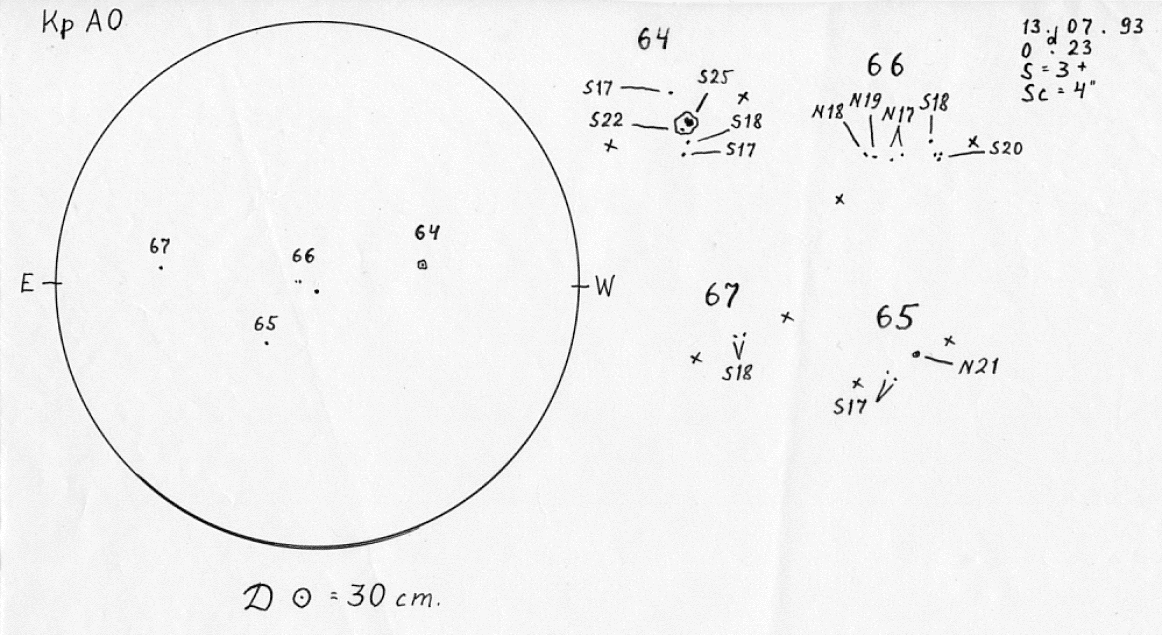 Кр АО
64
13 . 07 . 93
0 d . 23
S = 3 +
Sc = 4"
66
S17
S25
S22
S18
S17
N18 N19 N17 S18
S20
67
66
64
E
W
65
67
S18
65
N21
S17
D ⊙ = 30 cm.